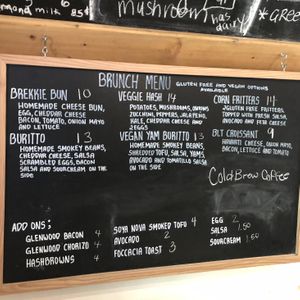 mond milk 85¢
mushroom
has
dairy
*GRE
BRUNCH MENU
GLUTEN FREE AND VEGAN OPTIONS
AVAILABLE
BREKKIE BUN 10
HOMEMADE CHEESE BUN,
EGG, CHEDDAR CHEESE
BACON, TOMATO, ONION MAYO
AND LETTUCE
BURITTO 13
HOMEMADE SMOKEY BEANS,
CHEDDAR CHEESE, SALSA
SCRAMBLED EGGS, BACON
SALSA AND SOURCREAM ON THE
SIDE
VEGGIE HASH 14
POTATOES, MUSHROOMS, ONIONS
ZUCCHINI, PEPPERS, JALAPENO,
KALE, CHEDDAR CHEESE AND
2EGGS
VEGAN YAM BURITTO 13
HOMEMADE SMOKEY BEANS,
SHREDDED TOFU, SALSA, YAMS,
AVOCADO AND TOMATILLO SALSA
ON THE SIDE
CORN FRITTERS 14
3 GLUTEN FREE FRITTERS,
TOPPED WITH FRESH SALSA,
CHEDDAR CHEESE, AND
BLT CROISSANT 9
HAVARTI CHEESE, ONION MAYO,
BACON, LETTUCE AND TOMATO
Cold Brew Coffee
ADD ONS;
GLENWOOD BACON 4
GLENWOOD CHORIZO 4
HASHBROWNS 4
SOYA NOVA SMOKED TOFU 4
AVOCADO 2
FOCCACIA TOAST 3
EGG 2
SALSA 1.50
SOURCREAM 1.50